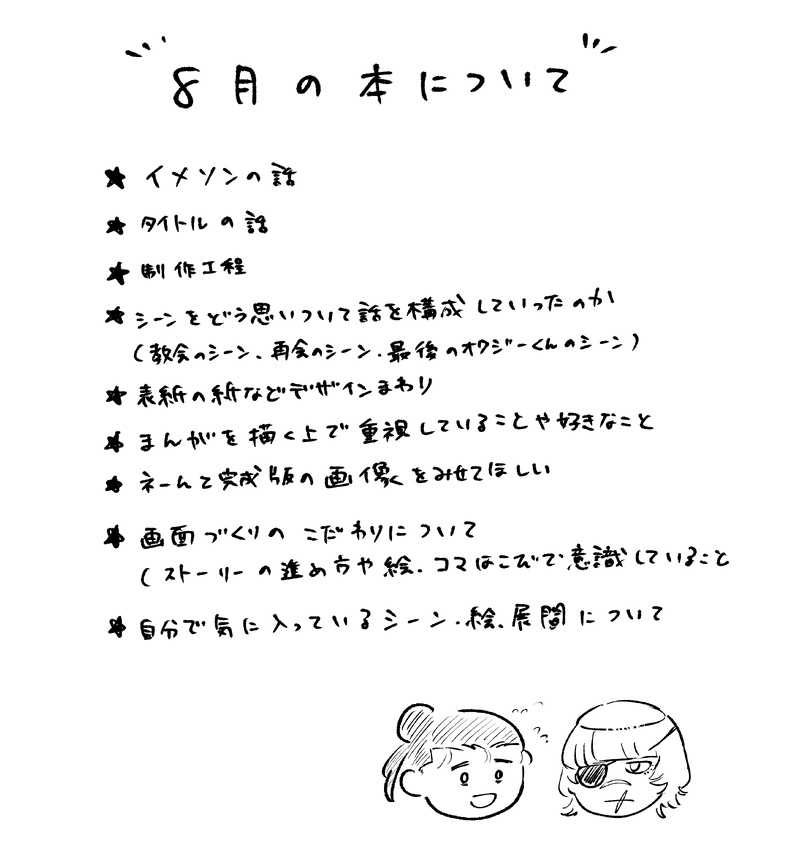 8月の本について
★ イメソンの話
★ タイトルの話
★ 制作工程
★ シーンをどう思いついて話を構成していったのか
(教会のシーン、再会のシーン、最後のオクジーくんのシーン)
★ 表紙の紙などデザインまわり
★ まんがを描く上で重視していることや好きなこと
★ ネームと完成版の画像をみせてほしい
★ 画面づくりのこだわりについて
(ストーリーの進め方や絵、コマはこびで意識していること
★ 自分で気に入っているシーン、絵、展開について